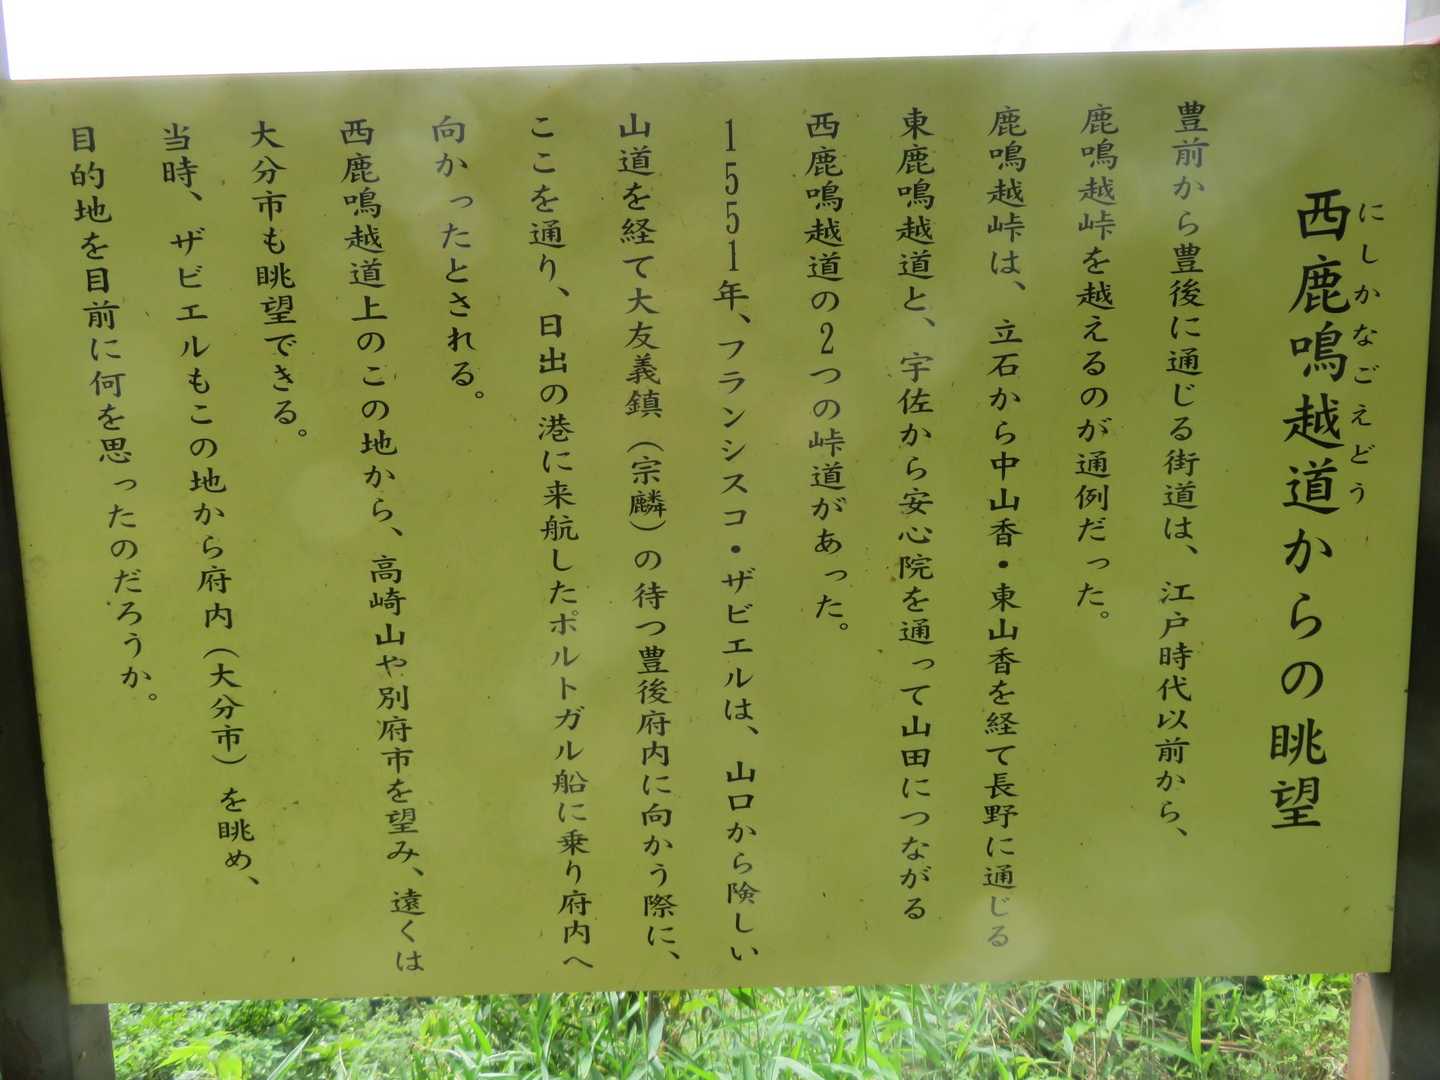 西鹿鳴越道からの眺望
にしかなごえどう
豊前から豊後に通じる街道は、江戸時代以前から、
鹿鳴越峠を越えるのが通例だった。
鹿鳴越峠は、立石から中山香・東山香を経て長野に通じる
東鹿鳴越道と、宇佐から安心院を通って山田につながる
西鹿鳴越道の2つの峠道があった。
1551年、フランシスコ・ザビエルは、山口から険しい
山道を経て大友義鎮（宗麟）の待つ豊後府内に向かう際に、
ここを通り、日出の港に来航したポルトガル船に乗り府内へ
向かったとされる。
西鹿鳴越道上のこの地から、高崎山や別府市を望み、遠くは
大分市も眺望できる。
当時、ザビエルもこの地から府内（大分市）を眺め、
目的地を目前に何を思ったのだろうか。